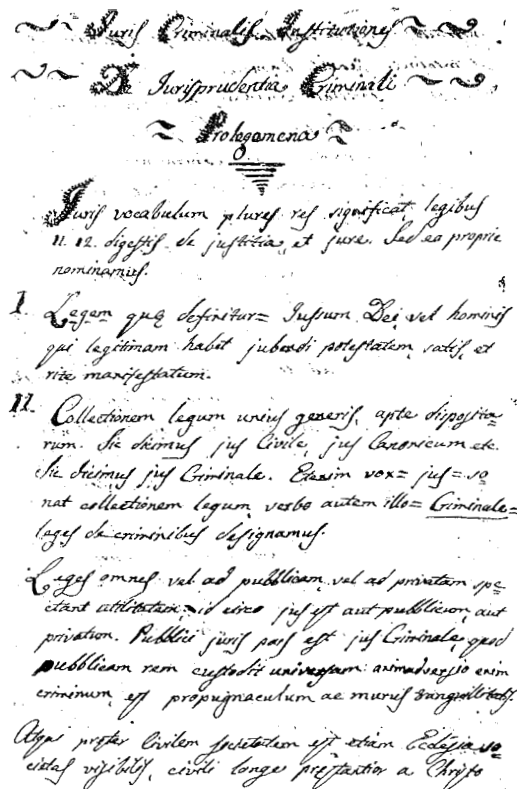 Juris Criminalis Institutiones
De Jurisprudentia Criminali
Prolegomena
Juris vocabulum plures res significat legibus
11. 12. digestis de justitia, et jure. Sed ea proprie
nominamus.
I. Legem quę definitur= Jussum Dei, vel hominis
qui legitimam habet jubendi potestatem, satis, et
rite manifestatum.
II. Collectionem legum unius generis, apte disposita=
rum. Sic dicimus jus Civile, jus Canonicum etc.
Sic dicimus jus Criminale. Etenim vox= jus= so=
nat collectionem legum, verbo autem illo= Criminale=
leges de criminibus designamus.
Leges omnes vel ad pubblicam, vel ad privatam spe=
ctant utilitatem, id circo jus est aut pubblicum, aut
privatum. Pubblici juris pars est jus Criminale, quod
pubblicam rem custodit universam: animadversio enim
criminum, est propugnaculum ac murus tranquillitatis.
Atqui pręter Civilem societatem est etiam Ecclesia so=
cietas visibilis, civili longe pręstantior a Christo